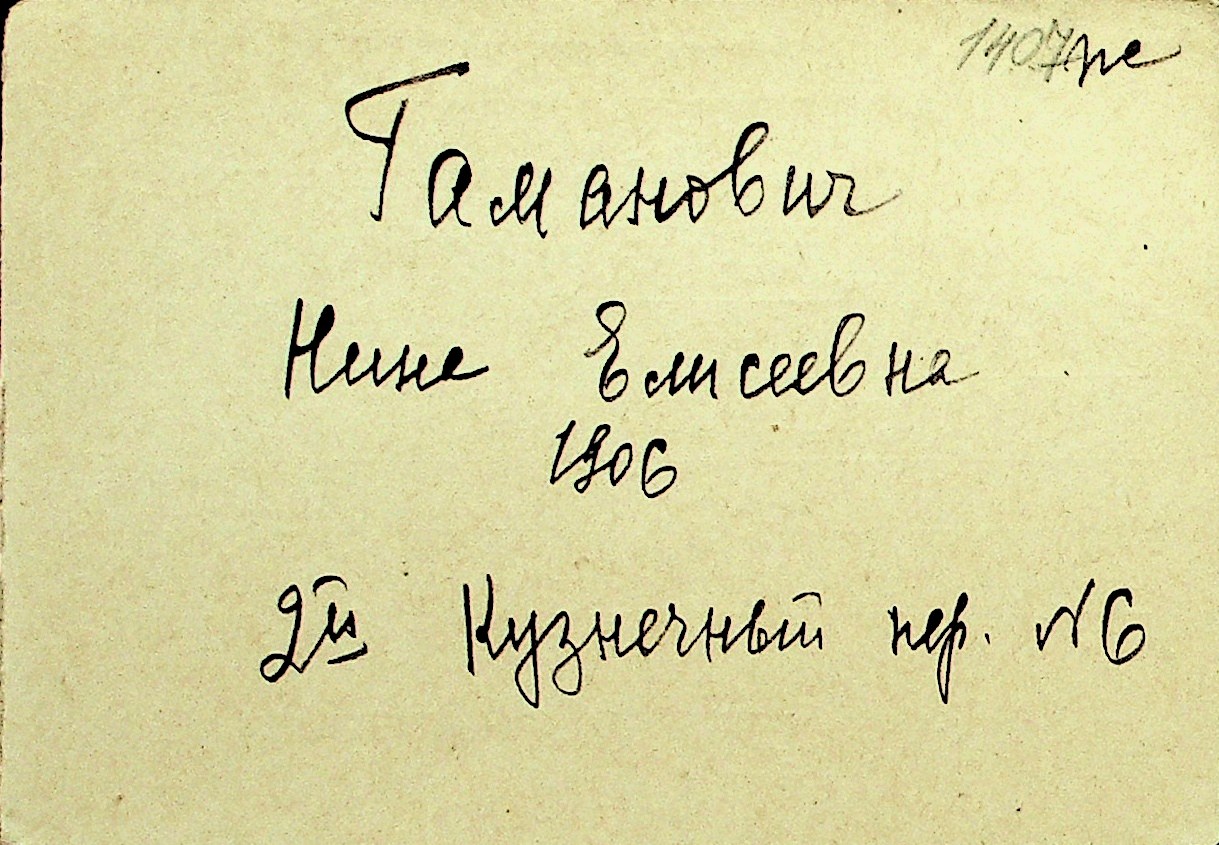 1407
Гаманович
Нина Елисеевна
1906
2й Кузнечный пер. N 6